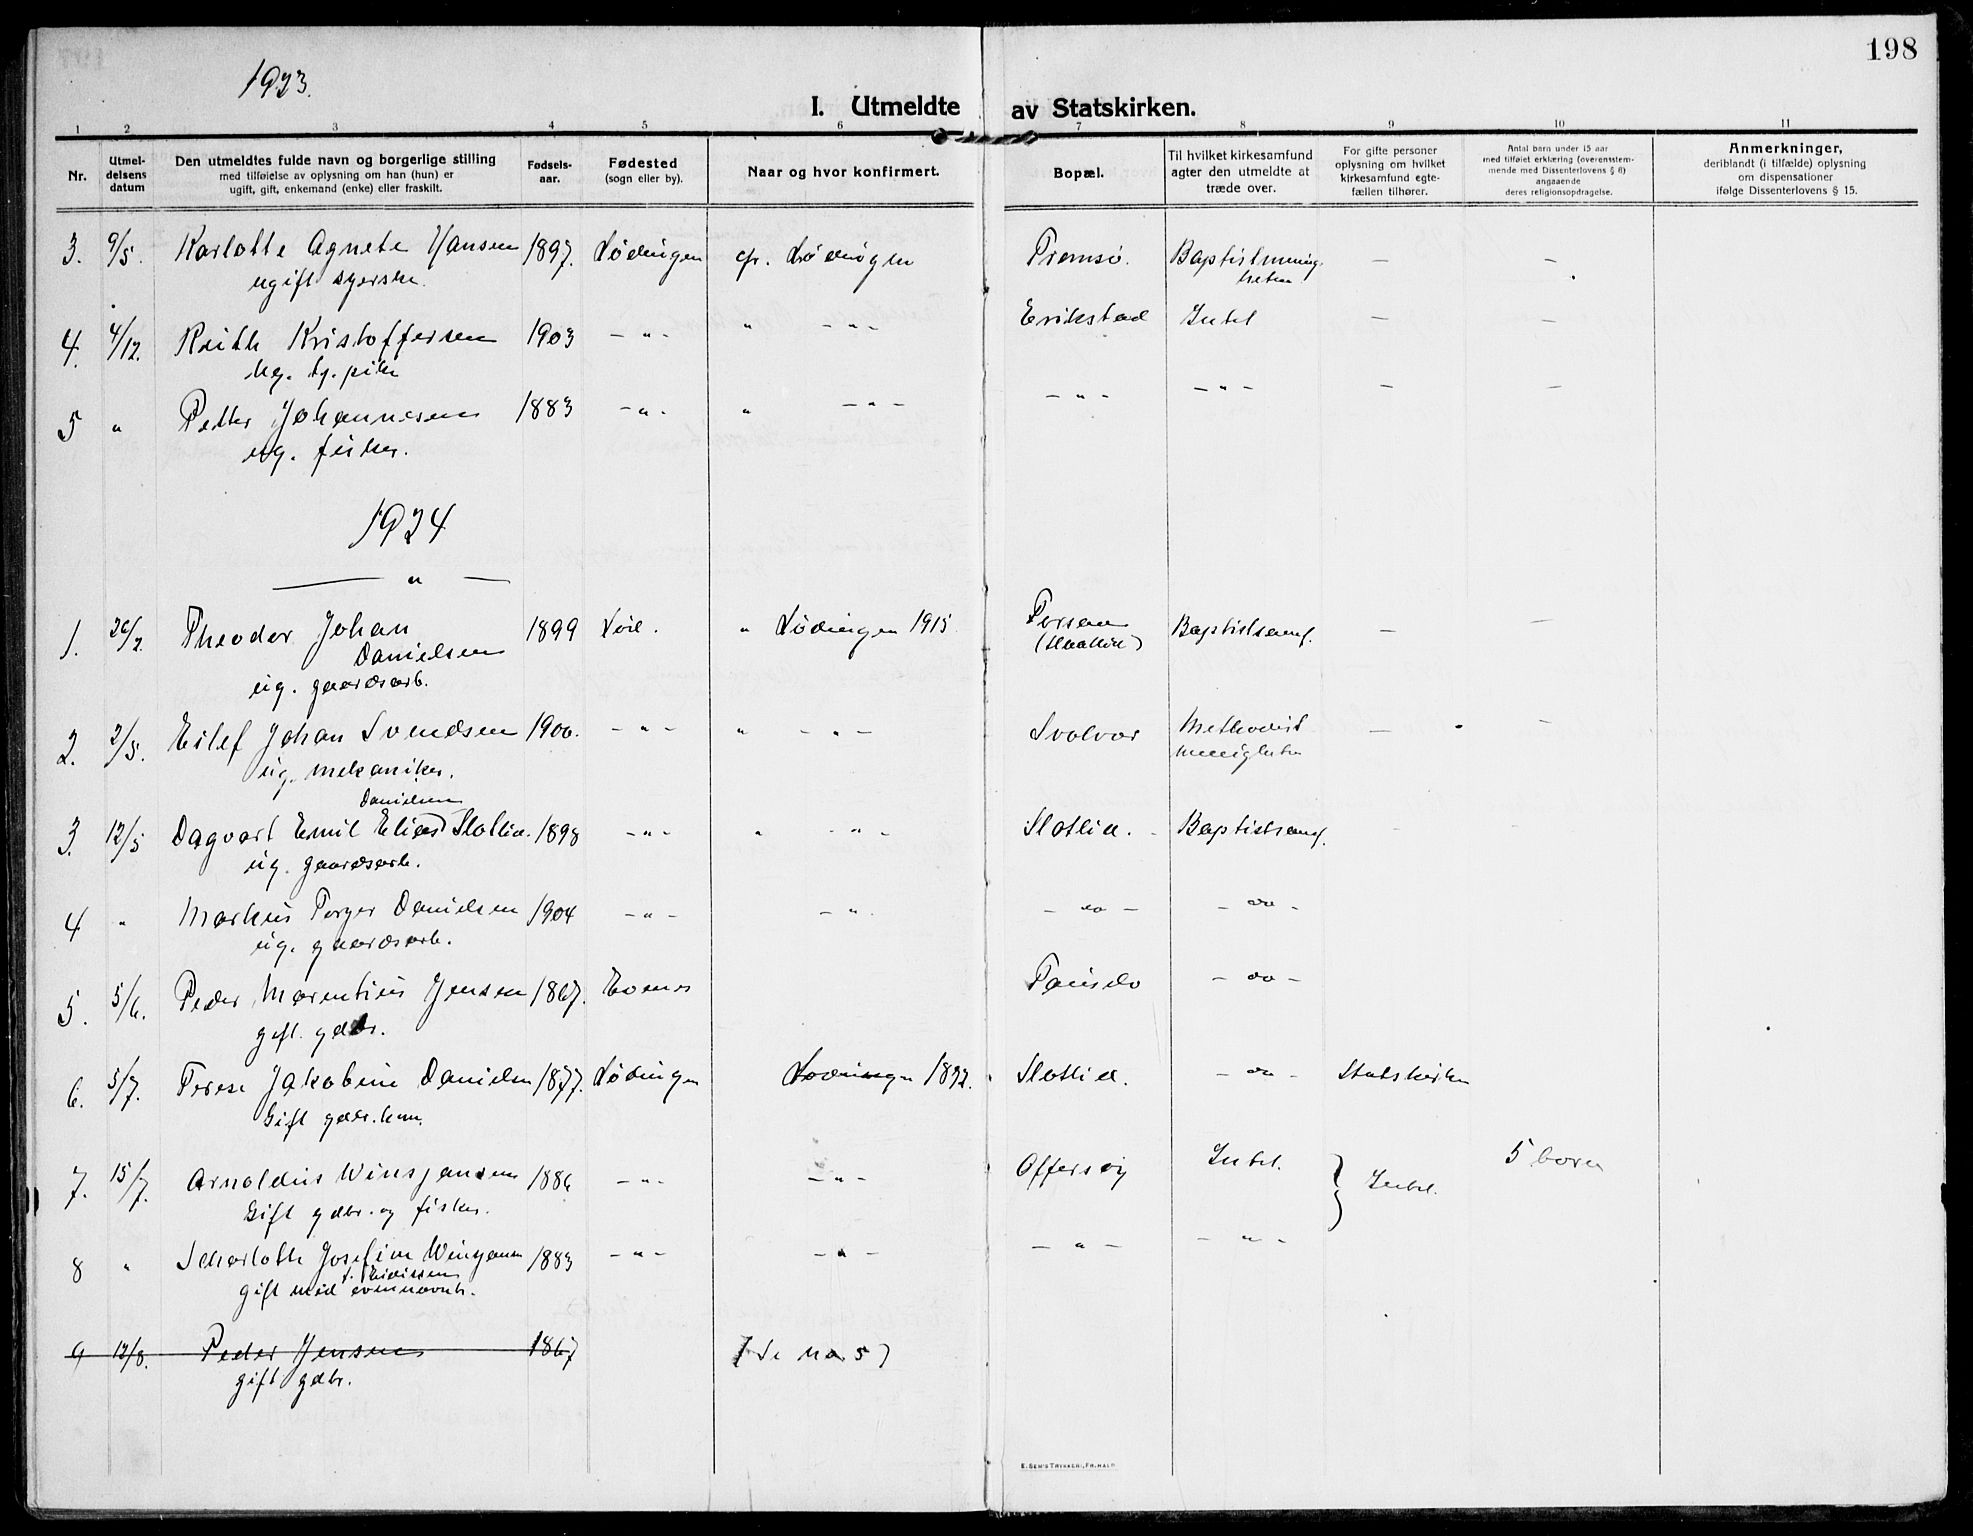 198
1923.
I. Utmeldte av Statskirken.
1 2 3 4 5 6 7 8 9 10 11
Nr.
Utmel-
delsens
datum
Den utmeldtes fulde navn og borgerlige stilling
med tilføielse av oplysning om han (hun) er
ugift, gift, enkemand (enke) eller fraskilt.
Fødsels-
aar.
Fødested
(sogn eller by).
Naar og hvor konfirmert.
Bopæl.
Til hvilket kirkesamfund
agter den utmeldte at
træde over.
For gifte personer
oplysning om hvilket
kirkesamfund egte-
fællen tilhører.
Antal barn under 15 aar
med tilføiet erklæring (overensstem-
mende med Dissenterlovens § 6)
angaaende
deres religionsopdragelse.
Anmerkninger,
deriblandt (i tilfælde) oplysning
om dispensationer
ifølge Dissenterlovens § 15.
3. 9/5. Karlotte Agnete Hansen 1897. Lødingen Lødingen Tromsø. — —
ugift syerske.
4. 4/12. Ruth Kristoffersen 1903 - " - " - " - Erikstad — —
ug. tj. pike
5 " Petter Johannesen 1883 - " - " - " - - " - - " - — —
ug. fisker.
1924
— " —
1. 26/2 Theodor Johan 1899 Lød. " Lødingen 1915 Baptistsamf. — —
Danielsen
ug. gaardsarb.
2. 2/5. Eilef Johan Svendsen 1900. - " - " - " - Svolvær Methodist — —
ug. mekaniker. menigheten
Danielsen
3. 12/5 Dagvart Emil Elias Slotlid. 1898 - " - " - " - Slotlid. Baptistsamf. - -
ug. gaardsarb.
4 " Markus Torger Danielsen 1904 - " - - " - - do - - do -
ug. gaardsarb.
5. 5/6. Peder Marentius Jensen 1867. Evenes - do -
gift. gdbr.
6. 5/7. Jakobine Danielsen 1877. Lødingen Lødingen 1892. Slotlid. - do - Statskirken
Gift gdbr. kone.
7. 15/7. Arnoldus Winsjansen 1886 - " - - " - Offersøy 5 born
Gift gdbr. og fisker.
8 " Josefine 1883 - " - - " - - " - - " -
gift med ovennevnte.
9 12/8. Peder Jensen 1867 (Se no. 5)
gift gdbr.
E. SEM'S TRYKKERI, FR.HALD